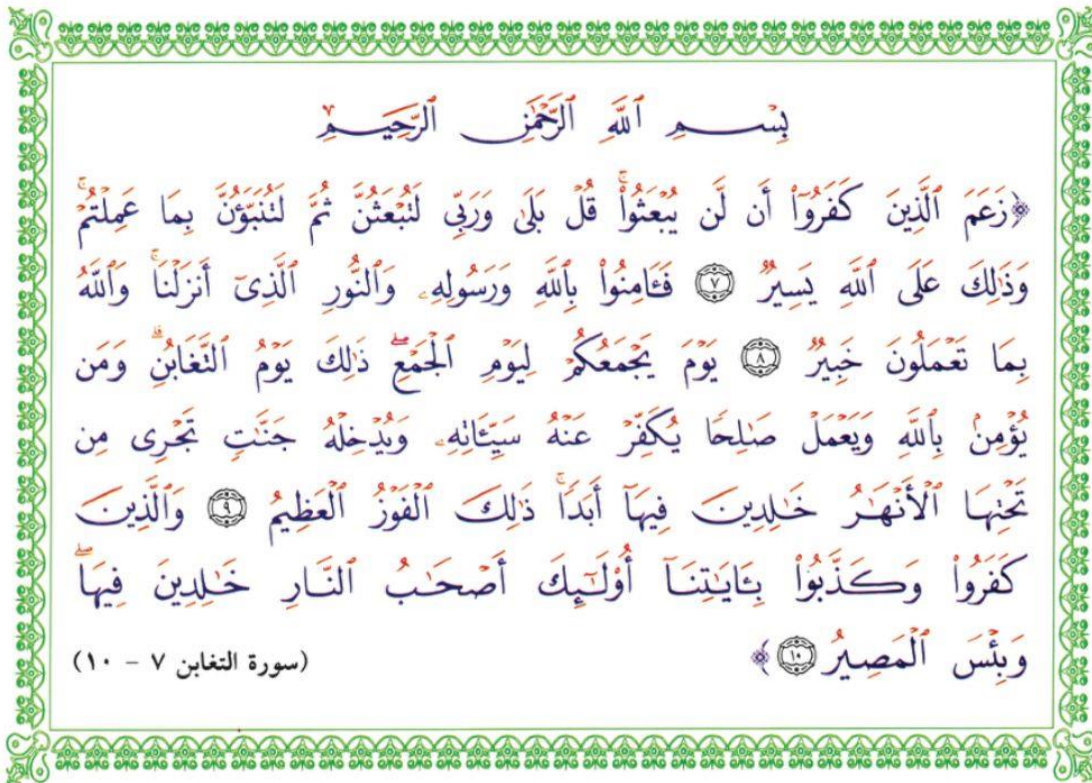 بِسْمِ ٱللَّهِ ٱلرَّحْمَٰنِ ٱلرَّحِيمِ
﴿زَعَمَ ٱلَّذِينَ كَفَرُوٓا۟ أَن لَّن يُبْعَثُوا۟ۚ قُلْ بَلَىٰ وَرَبِّى لَتُبْعَثُنَّ ثُمَّ لَتُنَبَّؤُنَّ بِمَا عَمِلْتُمْۚ
وَذَٰلِكَ عَلَى ٱللَّهِ يَسِيرٌ ٧ فَـَٔامِنُوا۟ بِٱللَّهِ وَرَسُولِهِۦ وَٱلنُّورِ ٱلَّذِىٓ أَنزَلْنَاۚ وَٱللَّهُ
بِمَا تَعْمَلُونَ خَبِيرٌ ٨ يَوْمَ يَجْمَعُكُمْ لِيَوْمِ ٱلْجَمْعِۖ ذَٰلِكَ يَوْمُ ٱلتَّغَابُنِۗ وَمَن
يُؤْمِنۢ بِٱللَّهِ وَيَعْمَلْ صَٰلِحًا يُكَفِّرْ عَنْهُ سَيِّـَٔاتِهِۦ وَيُدْخِلْهُ جَنَّٰتٍ تَجْرِى مِن
تَحْتِهَا ٱلْأَنْهَٰرُ خَٰلِدِينَ فِيهَآ أَبَدًاۚ ذَٰلِكَ ٱلْفَوْزُ ٱلْعَظِيمُ ٩ وَٱلَّذِينَ
كَفَرُوا۟ وَكَذَّبُوا۟ بِـَٔايَٰتِنَآ أُو۟لَٰٓئِكَ أَصْحَٰبُ ٱلنَّارِ خَٰلِدِينَ فِيهَاۖ
وَبِئْسَ ٱلْمَصِيرُ ١٠﴾ (سورة التغابن ٧ - ١٠)